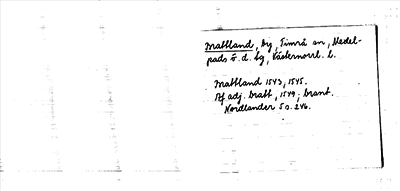 Mattland, by, Timrå sn, Medel-
pads ö. d. bg, Västernorrl. l.
Mattland 1543, 1545.
adj. bratt, 1549; brant.
Nordlander s. 246.